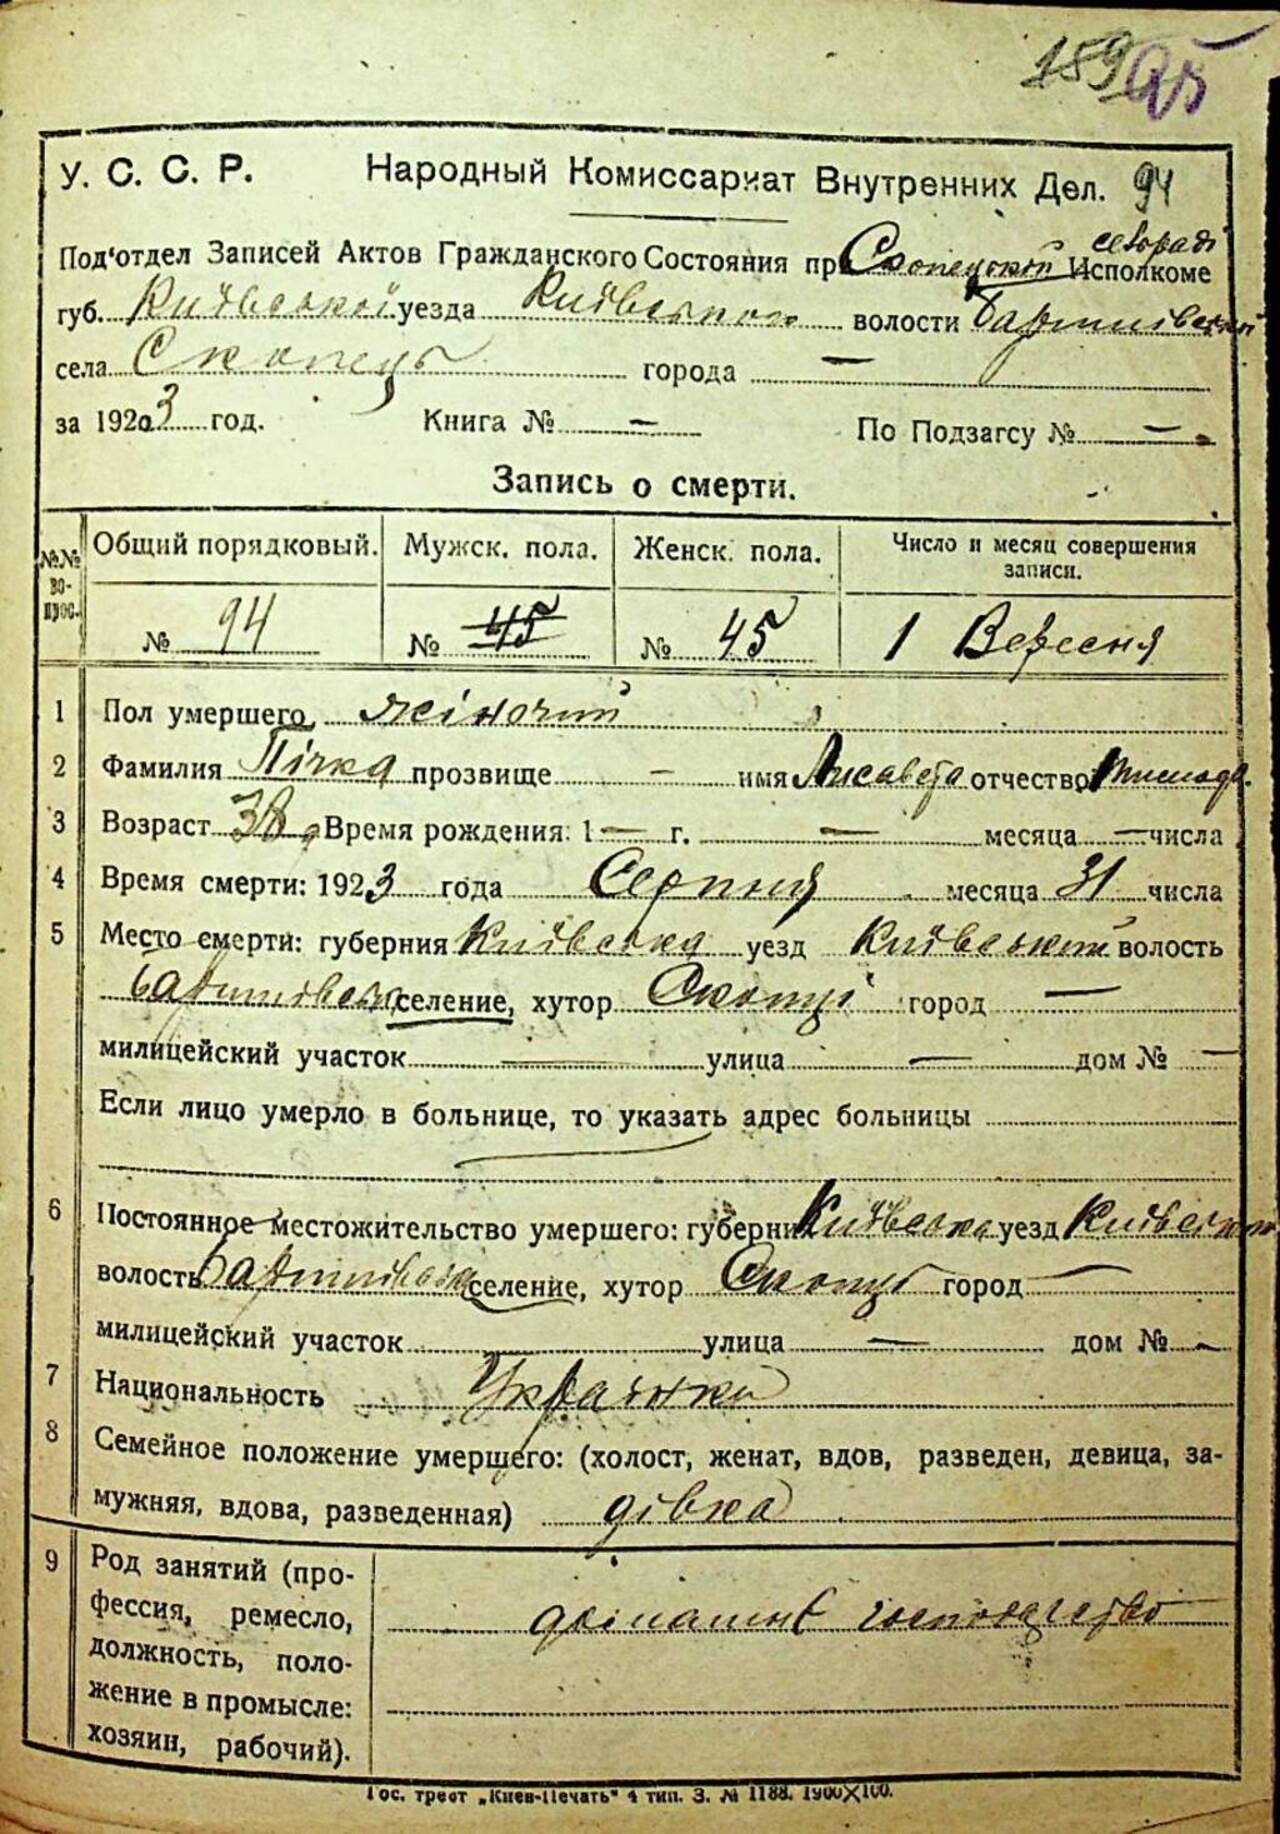 159 95
У. С. С. Р. Народный Комиссариат Внутренних Дел. 94
сельраді
Под'отдел Записей Актов Гражданского Состояния при Скопецкой Исполкоме
губ. Київської уезда Київського волости Баришівської
села Скопець города —
за 1923 год. Книга № — По Подзагсу № —
Запись о смерти.
№№ вопрос. Общий порядковый. Мужск. пола. Женск. пола. Число и месяц совершения записи.
№ 94 № 45 № 45 1 Вересня
1 Пол умершего жіночий
2 Фамилия Пічка прозвище — имя Лисавета отчество
3 Возраст 38 Время рождения: 1 — г. — месяца — числа
4 Время смерти: 1923 года Серпня месяца 31 числа
5 Место смерти: губерния Київська уезд Київський волость
Баришівська селение, хутор Скопці город —
милицейский участок — улица — дом № —
Если лицо умерло в больнице, то указать адрес больницы
6 Постоянное местожительство умершего: губерния Київська уезд Київський
волость Баришівська селение, хутор Скопці город —
милицейский участок улица — дом № —
7 Национальность Українка
8 Семейное положение умершего: (холост, женат, вдов, разведен, девица, за-
мужняя, вдова, разведенная) дівка
9 Род занятий (про-
фессия, ремесло,
должность, поло-
жение в промысле:
хозяин, рабочий).
домашнє господарство
Гос. трест „Киев-Печать" 4 тип. З. № 1188. 1900×100.